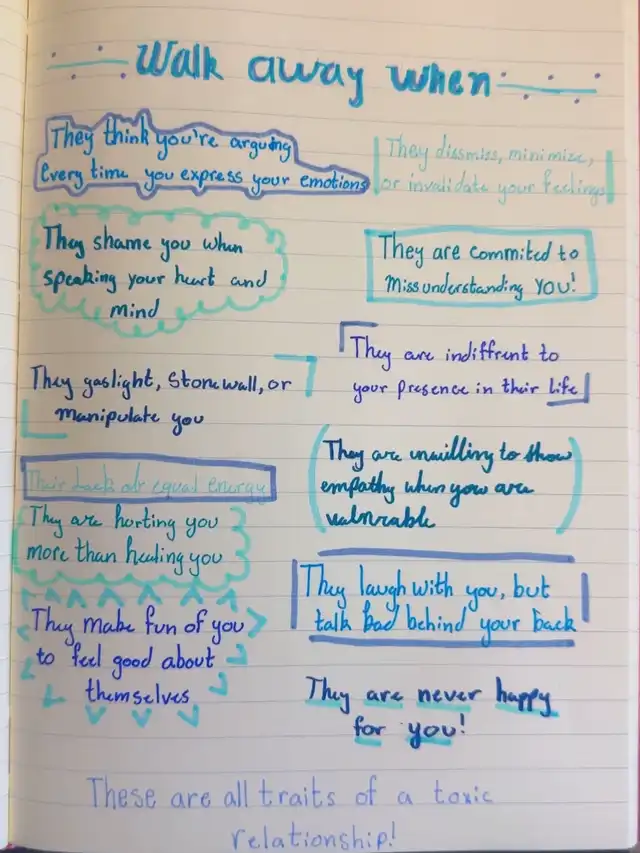 Walk away when
They think you're arguing
Every time you express your emotions
They dissmiss, minimize,
or invalidate your feelings
They shame you when
speaking your heart and
mind
They are commited to
missunderstanding YOU!
They gaslight, stonewall, or
manipulate you
They are indiffrent to
your presence in their life
Their lack of equal energy
They are unwilling to show
empathy when you are
vulnrable
They are hurting you
more than healing you
They laugh with you, but
talk bad behind your back
They make fun of you
to feel good about
themselves
They are never happy
for you!
These are all traits of a toxic
relationship!